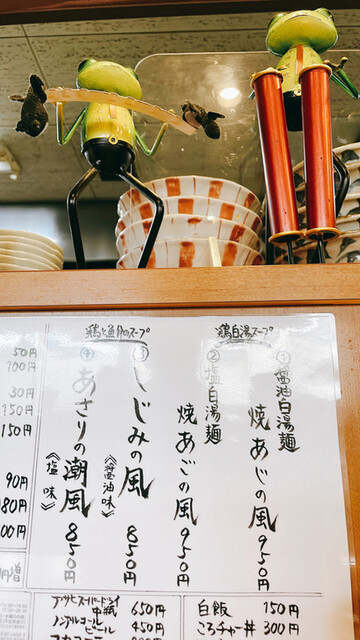 鶏白湯スープ
① 醤油白湯麺
焼あじの風 950円
② 塩白湯麺
焼あごの風 950円
鶏と魚介のスープ
③ しじみの風 850円
《醤油味》
④ あさりの潮風 850円
《塩味》
50円
100円
30円
150円
150円
90円
00円
円増
アサヒスーパードライ
中瓶 650円
ノンアルコール
ビール 450円
白飯 150円
ころチャー丼 300円